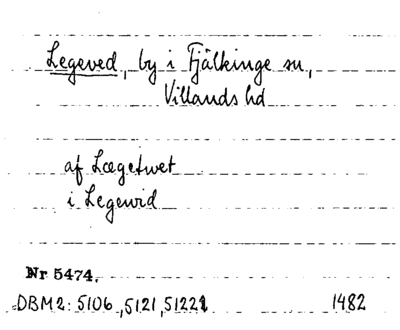 Legeved, by i Fjälkinge sn,
Villands hd
af Lægetwet
i Legewid
Nr 5474.
DBM2: 5106, 5121, 5122 1482